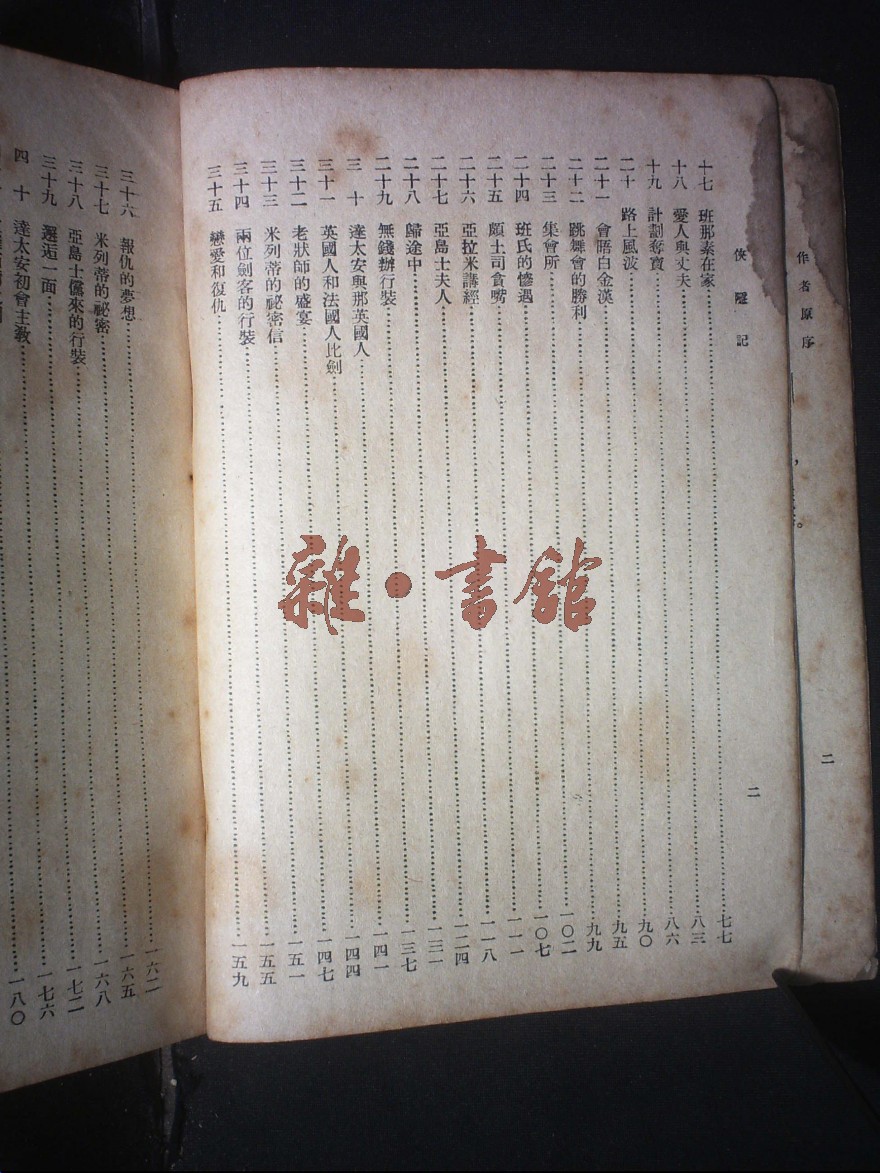 作者原序 二
俠隱記 二
十七 班那素在家……七七
十八 愛人與丈夫……八三
十九 計劃奪寶……八六
二十 路上風波……九〇
二十一 會晤白金漢……九五
二十二 跳舞會的勝利……九九
二十三 集會所……一〇二
二十四 班氏的慘遇……一〇七
二十五 頗土司貪嘴……一一一
二十六 亞拉米講經……一一八
二十七 亞島士夫人……一二四
二十八 歸途中……一三一
二十九 無錢辦行裝……一三七
三十 達太安與那英國人……一四一
三十一 英國人和法國人比劍……一四四
三十二 老狀師的盛宴……一四七
三十三 米列蒂的祕密信……一五一
三十四 兩位劍客的行裝……一五五
三十五 戀愛和復仇……一五九
三十六 報仇的夢想……一六二
三十七 米列蒂的祕密……一六五
三十八 亞島士儻來的行裝……一六八
三十九 邂逅一面……一七二
四十 達太安初會主教……一七六
一八〇
雜·書館